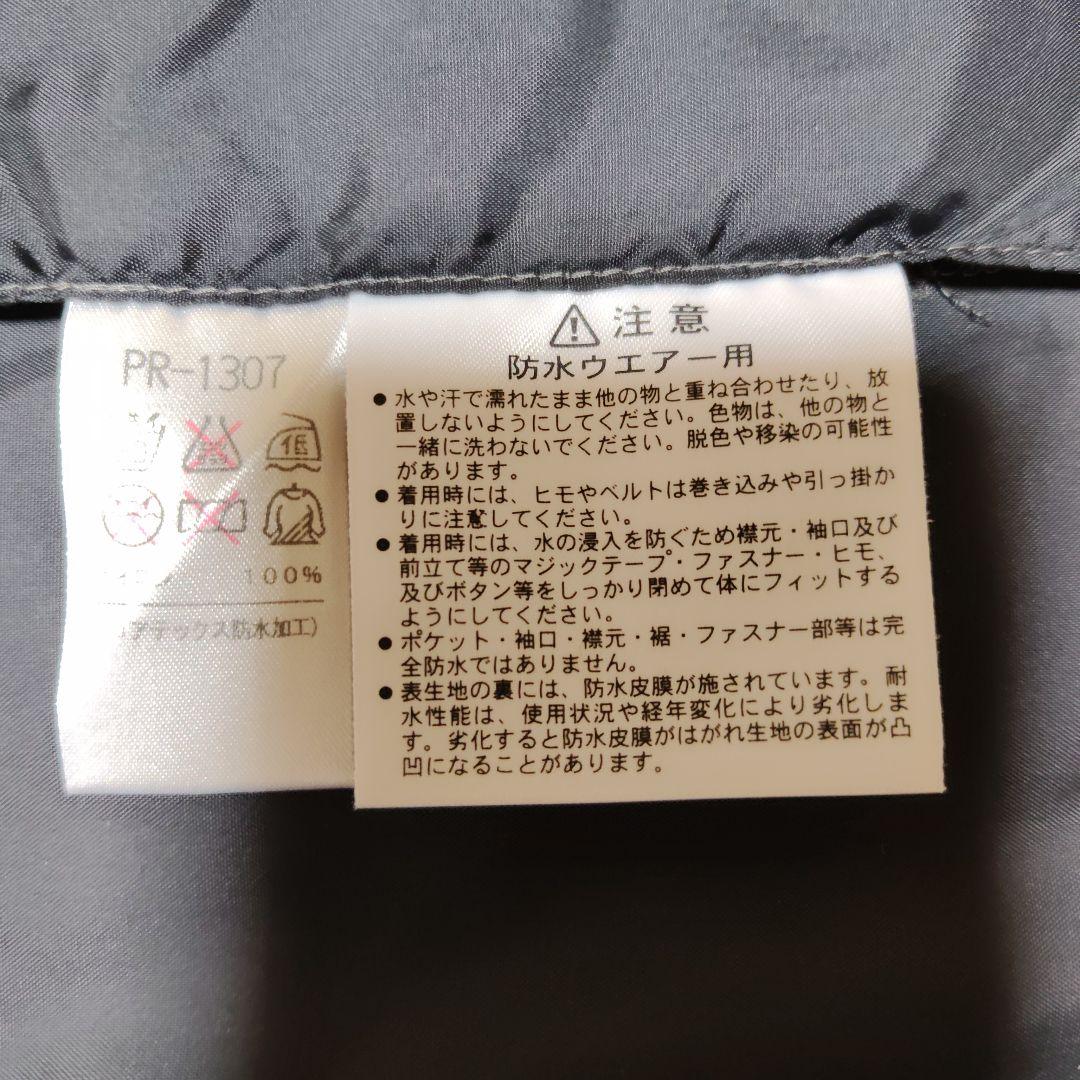 PR-1307
低
100%
アテックス防水加工)
注意
防水ウエアー用
● 水や汗で濡れたまま他の物と重ね合わせたり、放
置しないようにしてください。色物は、他の物と
一緒に洗わないでください。脱色や移染の可能性
があります。
● 着用時には、ヒモやベルトは巻き込みや引っ掛か
りに注意してください。
● 着用時には、水の浸入を防ぐため襟元・袖口及び
前立て等のマジックテープ・ファスナー・ヒモ、
及びボタン等をしっかり閉めて体にフィットする
ようにしてください。
● ポケット・袖口・襟元・裾・ファスナー部等は完
全防水ではありません。
● 表生地の裏には、防水皮膜が施されています。耐
水性能は、使用状況や経年変化により劣化しま
す。劣化すると防水皮膜がはがれ生地の表面が凸
凹になることがあります。